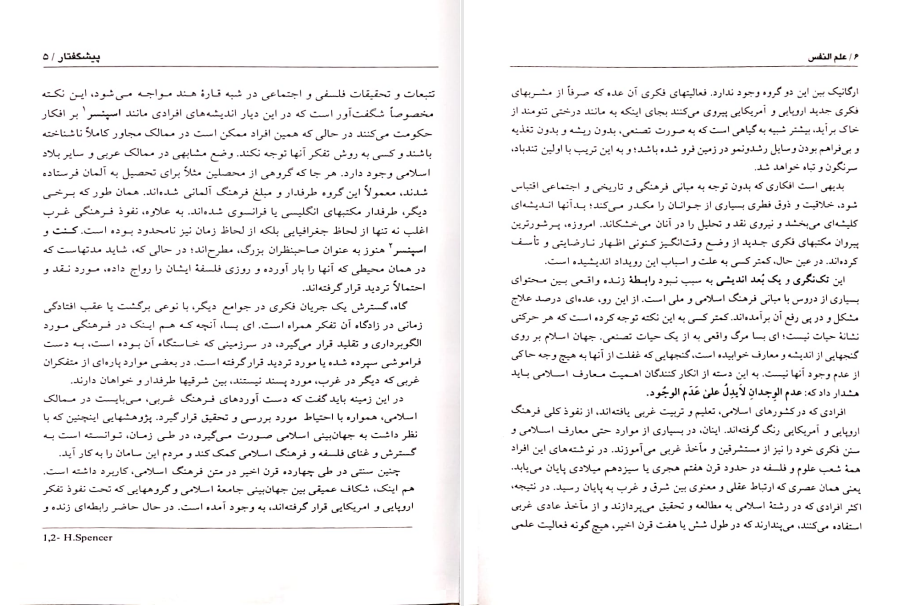 پیشگفتار / ۵
تتبعات و تحقیقات فلسفی و اجتماعی در شبه قارهٔ هند مواجه می‌شود، این نکته
مخصوصاً شگفت‌آور است که در این دیار اندیشه‌های افرادی مانند اسپنسر۱ بر افکار
حکومت می‌کنند در حالی که همین افراد ممکن است در ممالک مجاور کاملاً ناشناخته
باشند و کسی به روش تفکر آنها توجه نکند. وضع مشابهی در ممالک عربی و سایر بلاد
اسلامی وجود دارد. هر جا که گروهی از محصلین مثلاً برای تحصیل به آلمان فرستاده
شدند، معمولاً این گروه طرفدار و مبلغ فرهنگ آلمانی شده‌اند. همان طور که برخی
دیگر، طرفدار مکتبهای انگلیسی یا فرانسوی شده‌اند. به علاوه، نفوذ فرهنگی غرب
اغلب نه تنها از لحاظ جغرافیایی بلکه از لحاظ زمان نیز نامحدود بوده است. کنت و
اسپنسر۲ هنوز به عنوان صاحبنظران بزرگ، مطرح‌اند؛ در حالی که، شاید مدتهاست که
در همان محیطی که آنها را بار آورده و روزی فلسفهٔ ایشان را رواج داده، مورد نقد و
احتمالاً تردید قرار گرفته‌اند.
گاه، گسترش یک جریان فکری در جوامع دیگر، با نوعی برگشت یا عقب افتادگی
زمانی در زادگاه آن تفکر همراه است. ای بسا، آنچه که هم اینک در فرهنگی مورد
الگوبرداری و تقلید قرار می‌گیرد، در سرزمینی که خاستگاه آن بوده است، به دست
فراموشی سپرده شده یا مورد تردید قرار گرفته است. در بعضی موارد پاره‌ای از متفکران
غربی که دیگر در غرب، مورد پسند نیستند، بین شرقیها طرفدار و خواهان دارند.
در این زمینه باید گفت که دست آوردهای فرهنگ غربی، می‌بایست در ممالک
اسلامی، همواره با احتیاط مورد بررسی و تحقیق قرار گیرد. پژوهشهایی اینچنین که با
نظر داشت به جهان‌بینی اسلامی صورت می‌گیرد، در طی زمان، توانسته است به
گسترش و غنای فلسفه و فرهنگ اسلامی کمک کند و مردم این سامان را به کار آید.
چنین سنتی در طی چهارده قرن اخیر در متن فرهنگ اسلامی، کاربرد داشته است.
هم اینک، شکاف عمیقی بین جهان‌بینی جامعهٔ اسلامی و گروههایی که تحت نفوذ تفکر
اروپایی و امریکایی قرار گرفته‌اند، به وجود آمده است. در حال حاضر رابطه‌ای زنده و
1,2- H.Spencer
۶/ علم النفس
ارگانیک بین این دو گروه وجود ندارد. فعالیتهای فکری آن عده که صرفاً از مشربهای
فکری جدید اروپایی و آمریکایی پیروی می‌کنند بجای اینکه به مانند درختی تنومند از
خاک برآید، بیشتر شبیه به گیاهی است که به صورت تصنعی، بدون ریشه و بدون تغذیه
و بی‌فراهم بودن وسایل رشدونمو در زمین فرو شده باشد؛ و به این تریب با اولین تندباد،
سرنگون و تباه خواهد شد.
بدیهی است افکاری که بدون توجه به مبانی فرهنگی و تاریخی و اجتماعی اقتباس
شود، خلاقیت و ذوق فطری بسیاری از جوانان را مکدر می‌کند؛ بدآنها اندیشه‌ای
کلیشه‌ای می‌بخشد و نیروی نقد و تحلیل را در آنان می‌خشکاند. امروزه، پرشورترین
پیروان مکتبهای فکری جدید از وضع وقت‌انگیز کنونی اظهار نارضایتی و تأسف
کرده‌اند. در عین حال، کمتر کسی به علت و اسباب این رویداد اندیشیده است.
این تک‌نگری و یک بُعد اندیشی به سبب نبود رابطهٔ زنده واقعی بین محتوای
بسیاری از دروس با مبانی فرهنگ اسلامی و ملی است. از این رو، عده‌ای درصد علاج
مشکل و در پی رفع آن برآمده‌اند. کمتر کسی به این نکته توجه کرده است که هر حرکتی
نشانهٔ حیات نیست؛ ای بسا مرگ واقعی به از یک حیات تصنعی. جهان اسلام بر روی
گنجهایی از اندیشه و معارف خوابیده است، گنجهایی که غفلت از آنها به هیچ وجه حاکی
از عدم وجود آنها نیست. به این دسته از انکار کنندگان اهمیت معارف اسلامی باید
هشدار داد که: عدم الوجدانِ لایدِلُّ علیٰ عَدَم الوجُود.
افرادی که در کشورهای اسلامی، تعلیم و تربیت غربی یافته‌اند، از نفوذ کلی فرهنگ
اروپایی و آمریکایی رنگ گرفته‌اند. اینان، در بسیاری از موارد حتی معارف اسلامی و
سنن فکری خود را نیز از مستشرقین و مآخذ غربی می‌آموزند. در نوشته‌های این افراد
همهٔ شعب علوم و فلسفه در حدود قرن هفتم هجری یا سیزدهم میلادی پایان می‌یابد.
یعنی همان عصری که ارتباط عقلی و معنوی بین شرق و غرب به پایان رسید. در نتیجه،
اکثر افرادی که در رشتهٔ اسلامی به مطالعه و تحقیق می‌پردازند و از مآخذ عادی غربی
استفاده می‌کنند، می‌پندارند که در طول شش یا هفت قرن اخیر، هیچ گونه فعالیت علمی